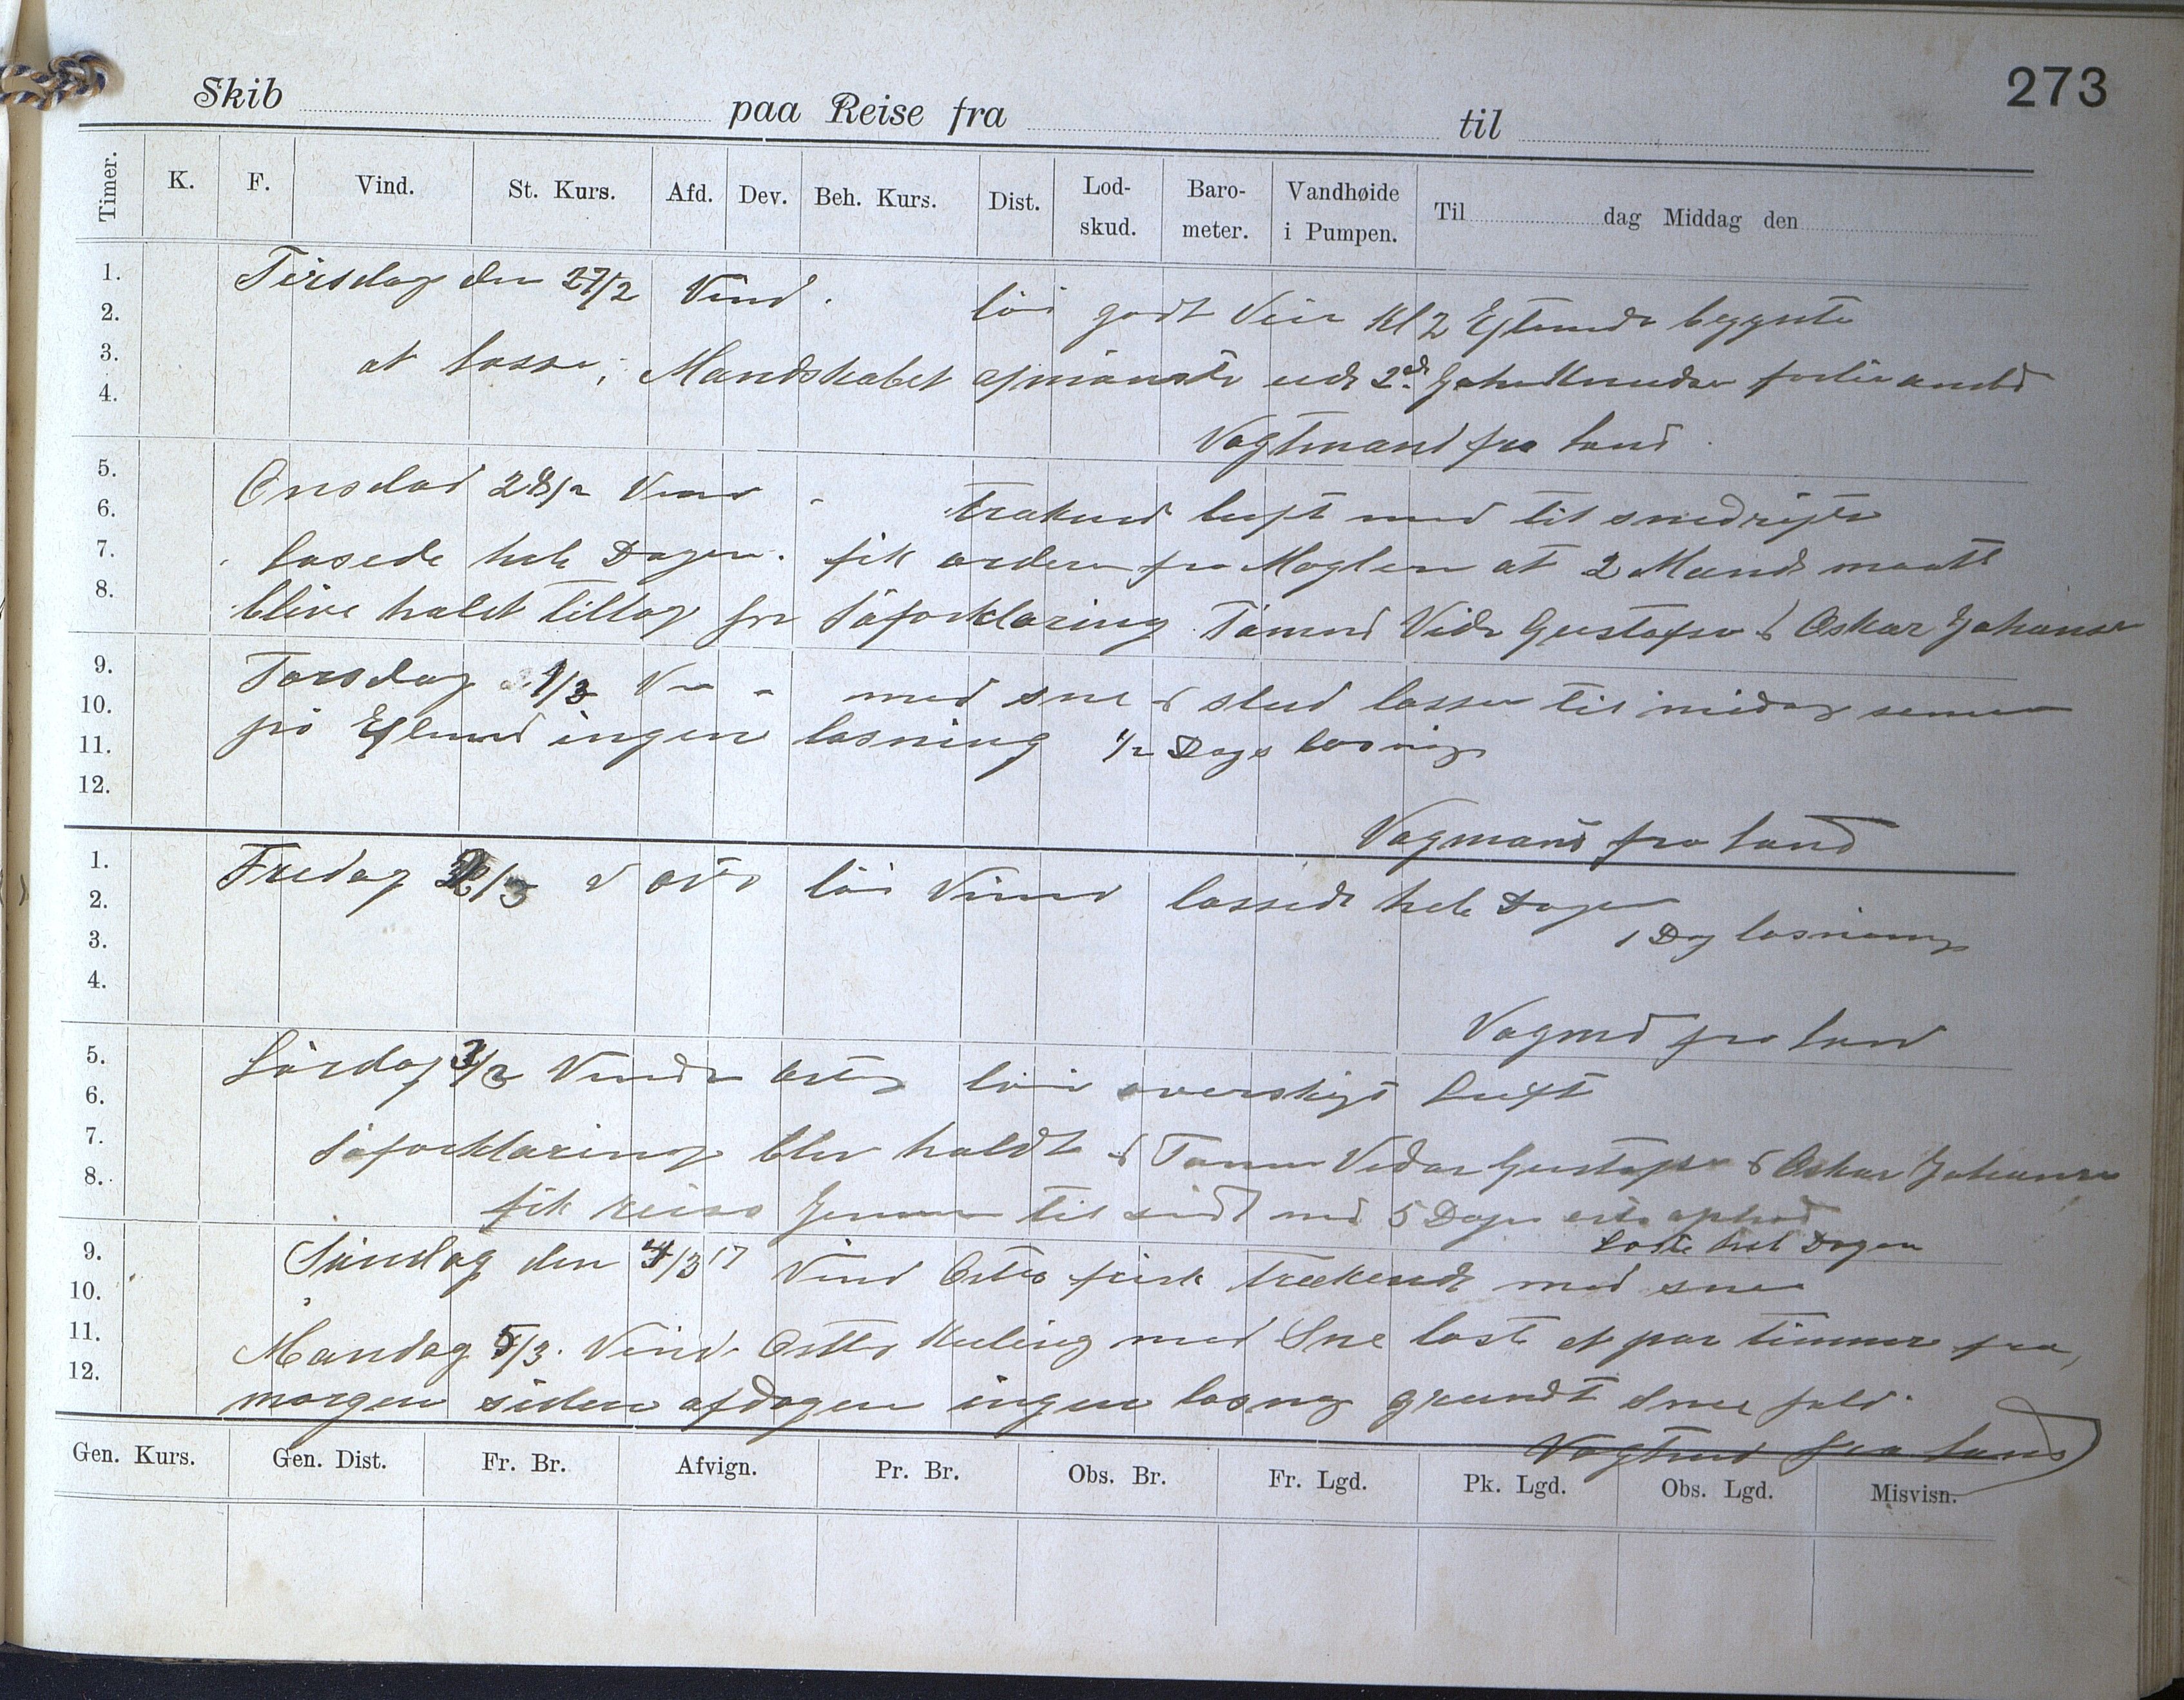 273
Skib paa Reise fra til
Timer. K. F. Vind. St. Kurs. Afd. Dev. Beh. Kurs. Dist. Lod-skud. Baro-meter. Vandhøide i Pumpen. Til dag Middag den
1.
2.
3.
4.
Tirsdag den 27/2 Vind. löi godt Veir Kl 2 Eftmd begynte
at losse, Mandskabet afmönste 2 John Knudsen
Vagtmand fra land
5.
6.
7.
8.
Onsdad 28/2 Vind luft med til snedrifte
lossede hele Dagen. fik ordern fra Mæglern at 2 Mand maatte
blive holdt tilbage for Söforklaring Tömmd Vidr Gustafsen & Oskar Johansen
9.
10.
11.
12.
Torsdag 1/3 V med sne & slud losser til midag senere
på Eftmd ingen losning 1/2 Dags losning
Vagmand fra land
1.
2.
3.
4.
Fredag 2/3 löi Vind lossede hele Dagen
1 Dag losning
Vagmd fra land
5.
6.
7.
8.
Lördag 3/3 Vinde löi overskyet Luft
Söforklaring blev holdt & Tömm Vidar Gustafsen & Oskar Johansen
fik til med 5 Dages
loste hele Dagen
9.
10.
11.
12.
Söndag den 4/3 17 Vind Östl frisk trækkende med sne
Mandag 5/3. Vind. Östlig Kuling med Sne loste et par timmer fra
morgen siden afdagen ingen losnig grundt Snee fald.
Vagtmd fra land
Gen. Kurs. Gen. Dist. Fr. Br. Afvign. Pr. Br. Obs. Br. Fr. Lgd. Pk. Lgd. Obs. Lgd. Misvisn.